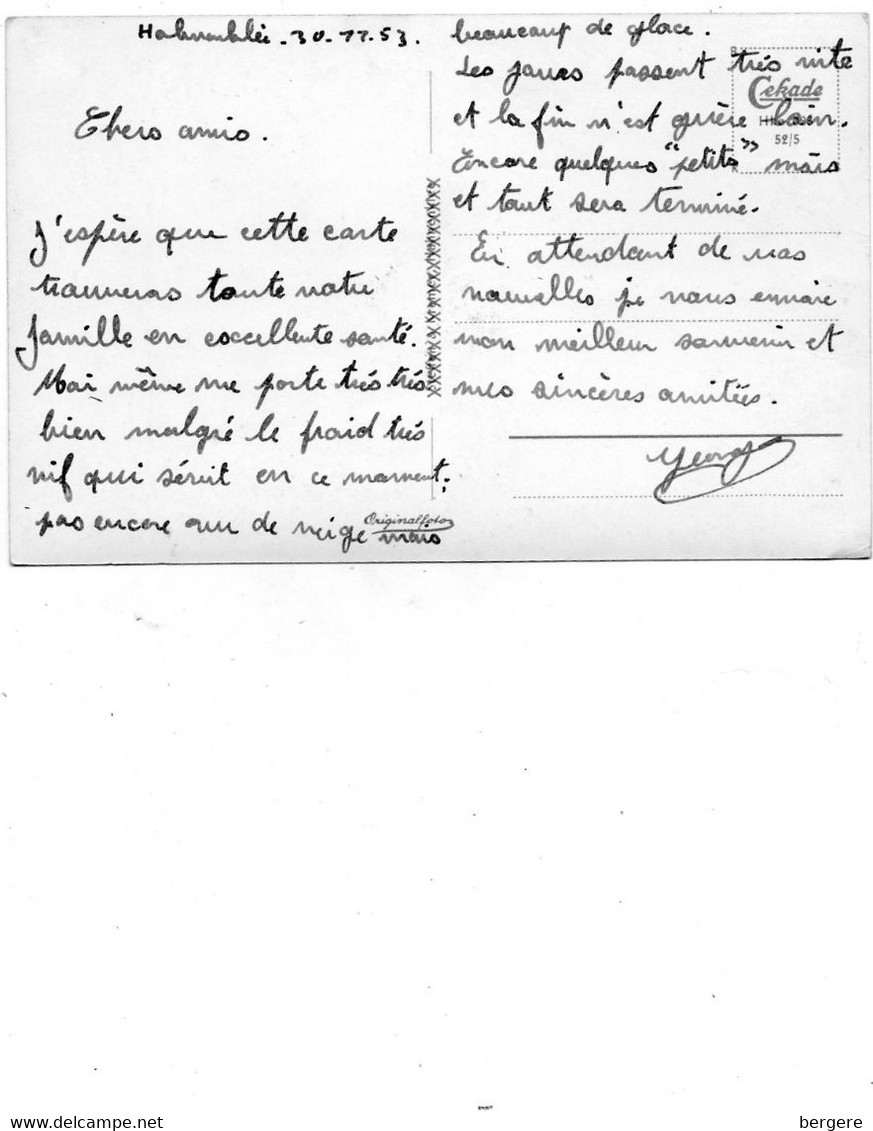 30.11.53.
Chers amis.
J'espère que cette carte
trouveras toute votre
famille en excellente santé.
Moi même me porte très très
bien malgré le froid très
vif qui sévit en ce moment;
pas encore de neige mais
Originalfoto
beaucoup de glace.
Les jours passent très vite
et la fin n'est guère loin.
Encore quelques "petits" mois
et tout sera terminé.
En attendant de vos
nouvelles je vous envoie
mon meilleur souvenir et
mes sincères amitiés.
Cekade
52/5
bergere